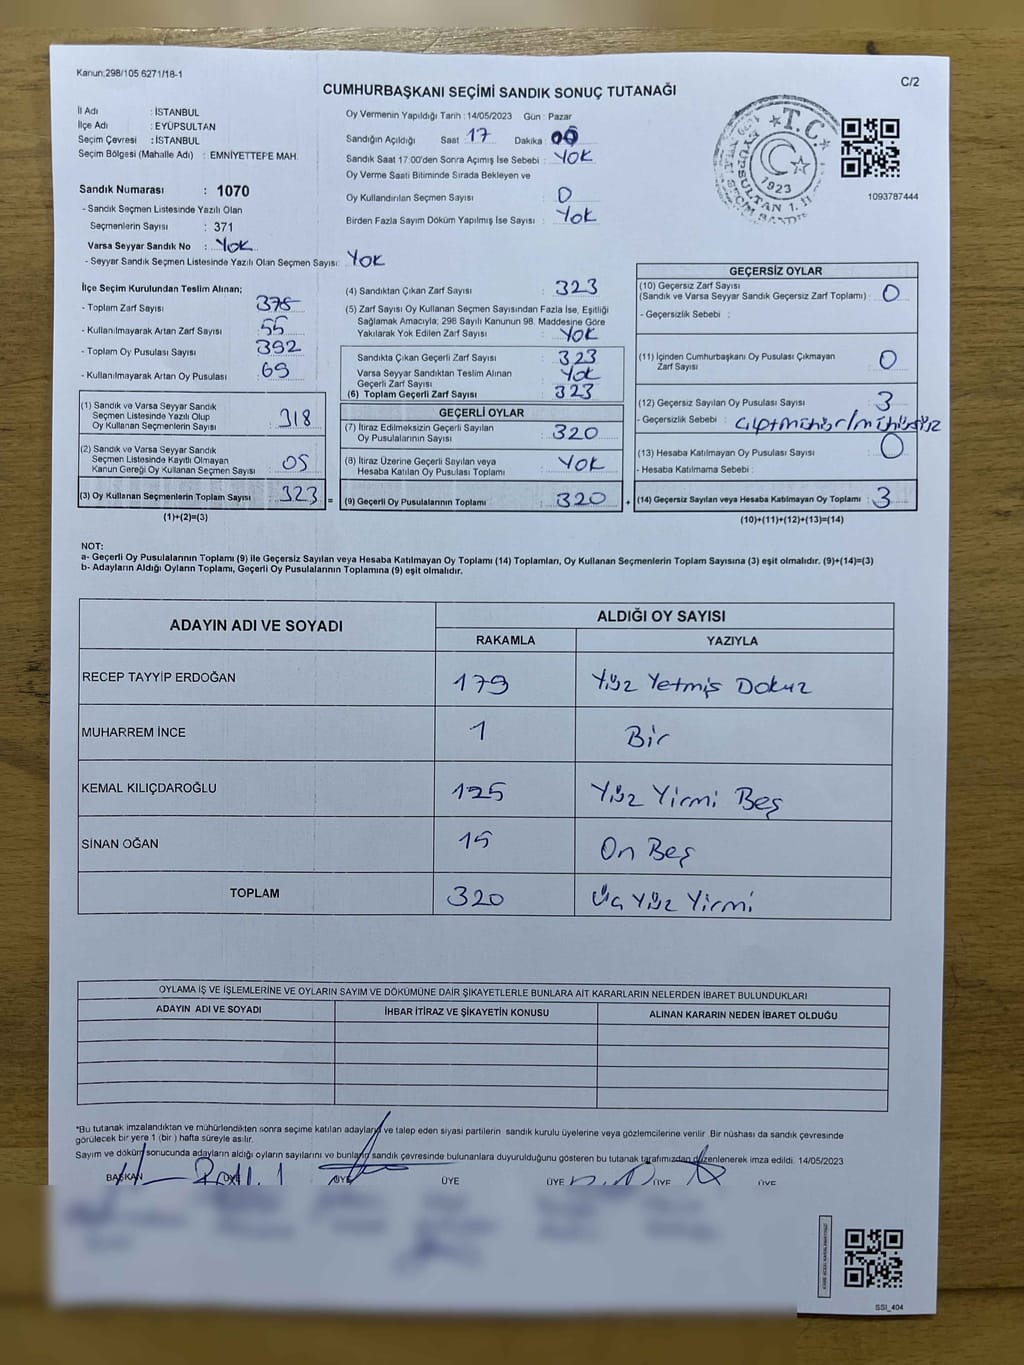 Kanun:298/105 6271/18-1
C/2
CUMHURBAŞKANI SEÇİMİ SANDIK SONUÇ TUTANAĞI
İl Adı : İSTANBUL
İlçe Adı : EYÜPSULTAN
Seçim Çevresi : İSTANBUL
Seçim Bölgesi (Mahalle Adı) : EMNİYETTEPE MAH.
Sandık Numarası : 1070
- Sandık Seçmen Listesinde Yazılı Olan
Seçmenlerin Sayısı : 371
Varsa Seyyar Sandık No : Yok
- Seyyar Sandık Seçmen Listesinde Yazılı Olan Seçmen Sayısı: Yok
Oy Vermenin Yapıldığı Tarih : 14/05/2023 Gün : Pazar
Sandığın Açıldığı Saat 17 Dakika : 00
Sandık Saat 17:00'den Sonra Açımış İse Sebebi : Yok
Oy Verme Saati Bitiminde Sırada Bekleyen ve
Oy Kullandırılan Seçmen Sayısı : 0
Birden Fazla Sayım Döküm Yapılmış İse Sayısı : Yok
T.C.
EYÜPSULTAN 1. İL
1923
1093787444
İlçe Seçim Kurulundan Teslim Alınan;
- Toplam Zarf Sayısı : 378
- Kullanılmayarak Artan Zarf Sayısı : 55
- Toplam Oy Pusulası Sayısı : 392
- Kullanılmayarak Artan Oy Pusulası : 69
(1) Sandık ve Varsa Seyyar Sandık
Seçmen Listesinde Yazılı Olup
Oy Kullanan Seçmenlerin Sayısı : 318
(2) Sandık ve Varsa Seyyar Sandık
Seçmen Listesinde Kayıtlı Olmayan
Kanun Gereği Oy Kullanan Seçmen Sayısı : 05
(3) Oy Kullanan Seçmenlerin Toplam Sayısı : 323 =
(1)+(2)=(3)
(4) Sandıktan Çıkan Zarf Sayısı : 323
(5) Zarf Sayısı Oy Kullanan Seçmen Sayısından Fazla İse, Eşitliği
Sağlamak Amacıyla; 298 Sayılı Kanunun 98. Maddesine Göre
Yakılarak Yok Edilen Zarf Sayısı : Yok
Sandıkta Çıkan Geçerli Zarf Sayısı : 323
Varsa Seyyar Sandıktan Teslim Alınan
Geçerli Zarf Sayısı : Yok
(6) Toplam Geçerli Zarf Sayısı : 323
GEÇERLİ OYLAR
(7) İtiraz Edilmeksizin Geçerli Sayılan
Oy Pusulalarının Sayısı : 320
(8) İtiraz Üzerine Geçerli Sayılan veya
Hesaba Katılan Oy Pusulası Toplamı : Yok
(9) Geçerli Oy Pusulalarının Toplamı : 320 +
GEÇERSİZ OYLAR
(10) Geçersiz Zarf Sayısı
(Sandık ve Varsa Seyyar Sandık Geçersiz Zarf Toplamı) : 0
- Geçersizlik Sebebi :
(11) İçinden Cumhurbaşkanı Oy Pusulası Çıkmayan
Zarf Sayısı : 0
(12) Geçersiz Sayılan Oy Pusulası Sayısı : 3
- Geçersizlik Sebebi : Çiftmühür/mühürsüz
(13) Hesaba Katılmayan Oy Pusulası Sayısı : 0
- Hesaba Katılmama Sebebi :
(14) Geçersiz Sayılan veya Hesaba Katılmayan Oy Toplamı : 3
(10)+(11)+(12)+(13)=(14)
NOT:
a- Geçerli Oy Pusulalarının Toplamı (9) ile Geçersiz Sayılan veya Hesaba Katılmayan Oy Toplamı (14) Toplamları, Oy Kullanan Seçmenlerin Toplam Sayısına (3) eşit olmalıdır. (9)+(14)=(3)
b- Adayların Aldığı Oyların Toplamı, Geçerli Oy Pusulalarının Toplamına (9) eşit olmalıdır.
ADAYIN ADI VE SOYADI
ALDIĞI OY SAYISI
RAKAMLA YAZIYLA
RECEP TAYYİP ERDOĞAN 179 Yüz Yetmiş Dokuz
MUHARREM İNCE 1 Bir
KEMAL KILIÇDAROĞLU 125 Yüz Yirmi Beş
SİNAN OĞAN 15 On Beş
TOPLAM 320 Üç Yüz Yirmi
OYLAMA İŞ VE İŞLEMLERİNE VE OYLARIN SAYIM VE DÖKÜMÜNE DAİR ŞİKAYETLERLE BUNLARA AİT KARARLARIN NELERDEN İBARET BULUNDUKLARI
ADAYIN ADI VE SOYADI İHBAR İTİRAZ VE ŞİKAYETİN KONUSU ALINAN KARARIN NEDEN İBARET OLDUĞU
*Bu tutanak imzalandıktan ve mühürlendikten sonra seçime katılan adayların ve talep eden siyasi partilerin sandık kurulu üyelerine veya gözlemcilerine verilir. Bir nüshası da sandık çevresinde
görülecek bir yere 1 (bir ) hafta süreyle asılır.
Sayım ve döküm sonucunda adayların aldığı oyların sayılarını ve bunların sandık çevresinde bulunanlara duyurulduğunu gösteren bu tutanak tarafımızdan düzenlenerek imza edildi. 14/05/2023
BAŞKAN ÜYE ÜYE ÜYE ÜYE ÜYE ÜYE
SSI_404